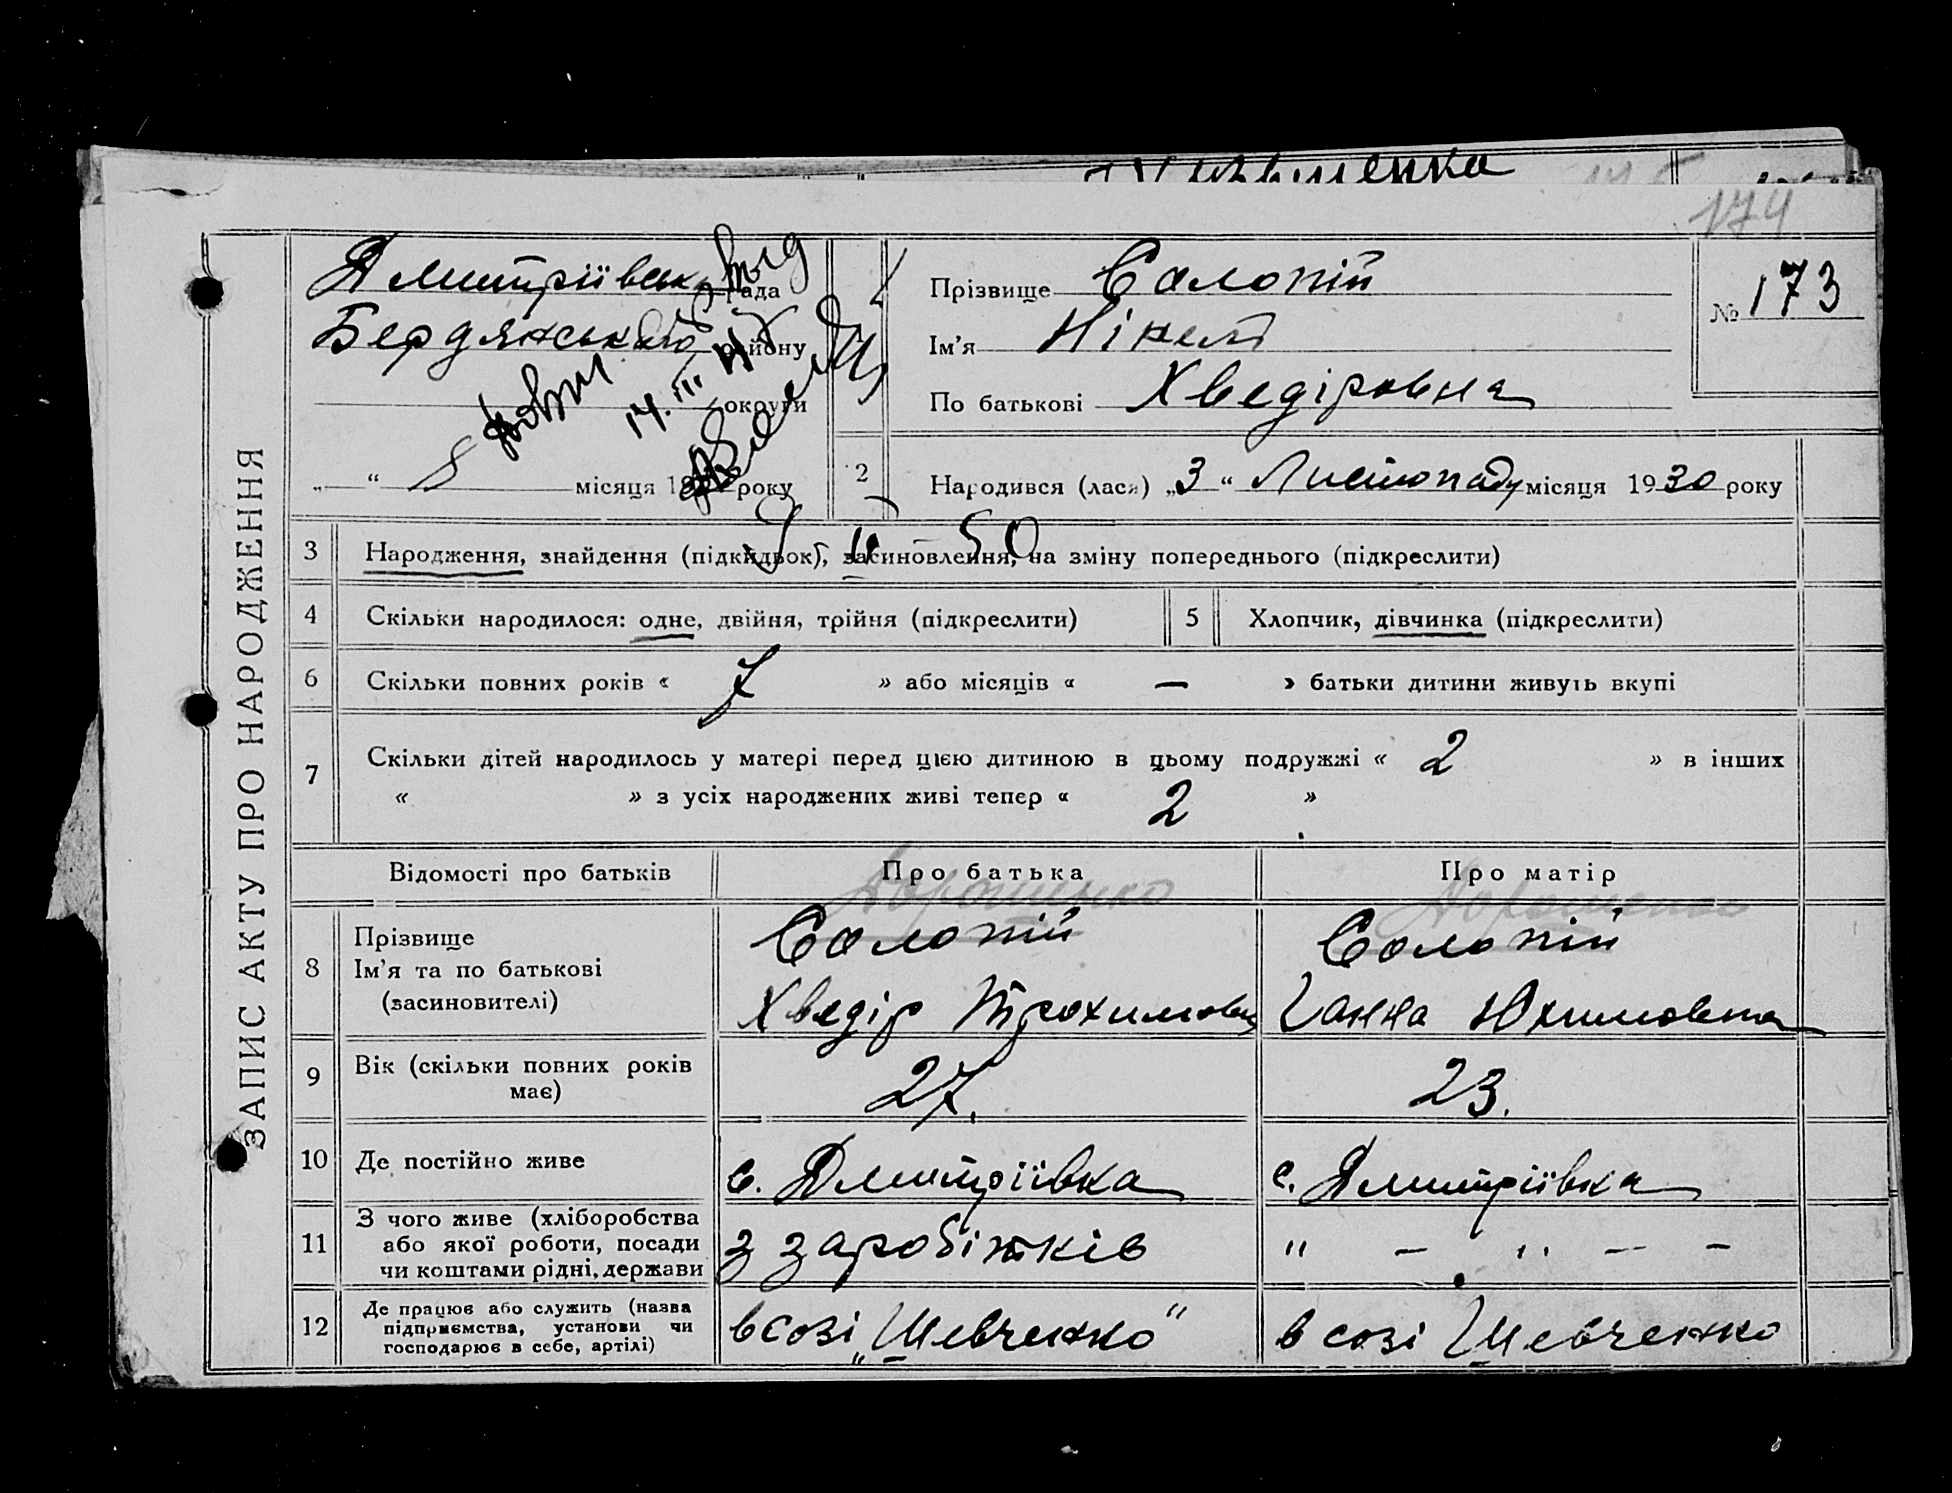 174
ЗАПИС АКТУ ПРО НАРОДЖЕННЯ
Дмитріївська рада
Бердянського району
округи
„ “ місяця 19 року
14.III
9 II 50
1
Прізвище Солопій
Ім'я Нінель
По батькові Хведіровна
№ 173
2
Народився (лася) „3“ Листопаду місяця 1930 року
3 Народження, знайдення (підкидьок), засиновлення, на зміну попереднього (підкреслити)
4 Скільки народилося: одне, двійня, трійня (підкреслити) 5 Хлопчик, дівчинка (підкреслити)
6 Скільки повних років « 7 » або місяців « — » батьки дитини живуть вкупі
7 Скільки дітей народилось у матері перед цією дитиною в цьому подружжі « 2 » в інших
« » з усіх народжених живі тепер « 2 »
Відомості про батьків Про батька Про матір
Дорошенко Дорошенко
8 Прізвище Солопій Солопій
Ім'я та по батькові
(засиновителі) Хведір Трохимович Ганна Юхимовна
9 Вік (скільки повних років має) 27. 23.
10 Де постійно живе с. Дмитріївка с. Дмитріївка
11 З чого живе (хліборобства
або якої роботи, посади
чи коштами рідні, держави з заробітків " — " — —
12 Де працює або служить (назва
підприємства, установи чи
господарює в себе, артілі) в созі „Шевченко" в созі Шевченко